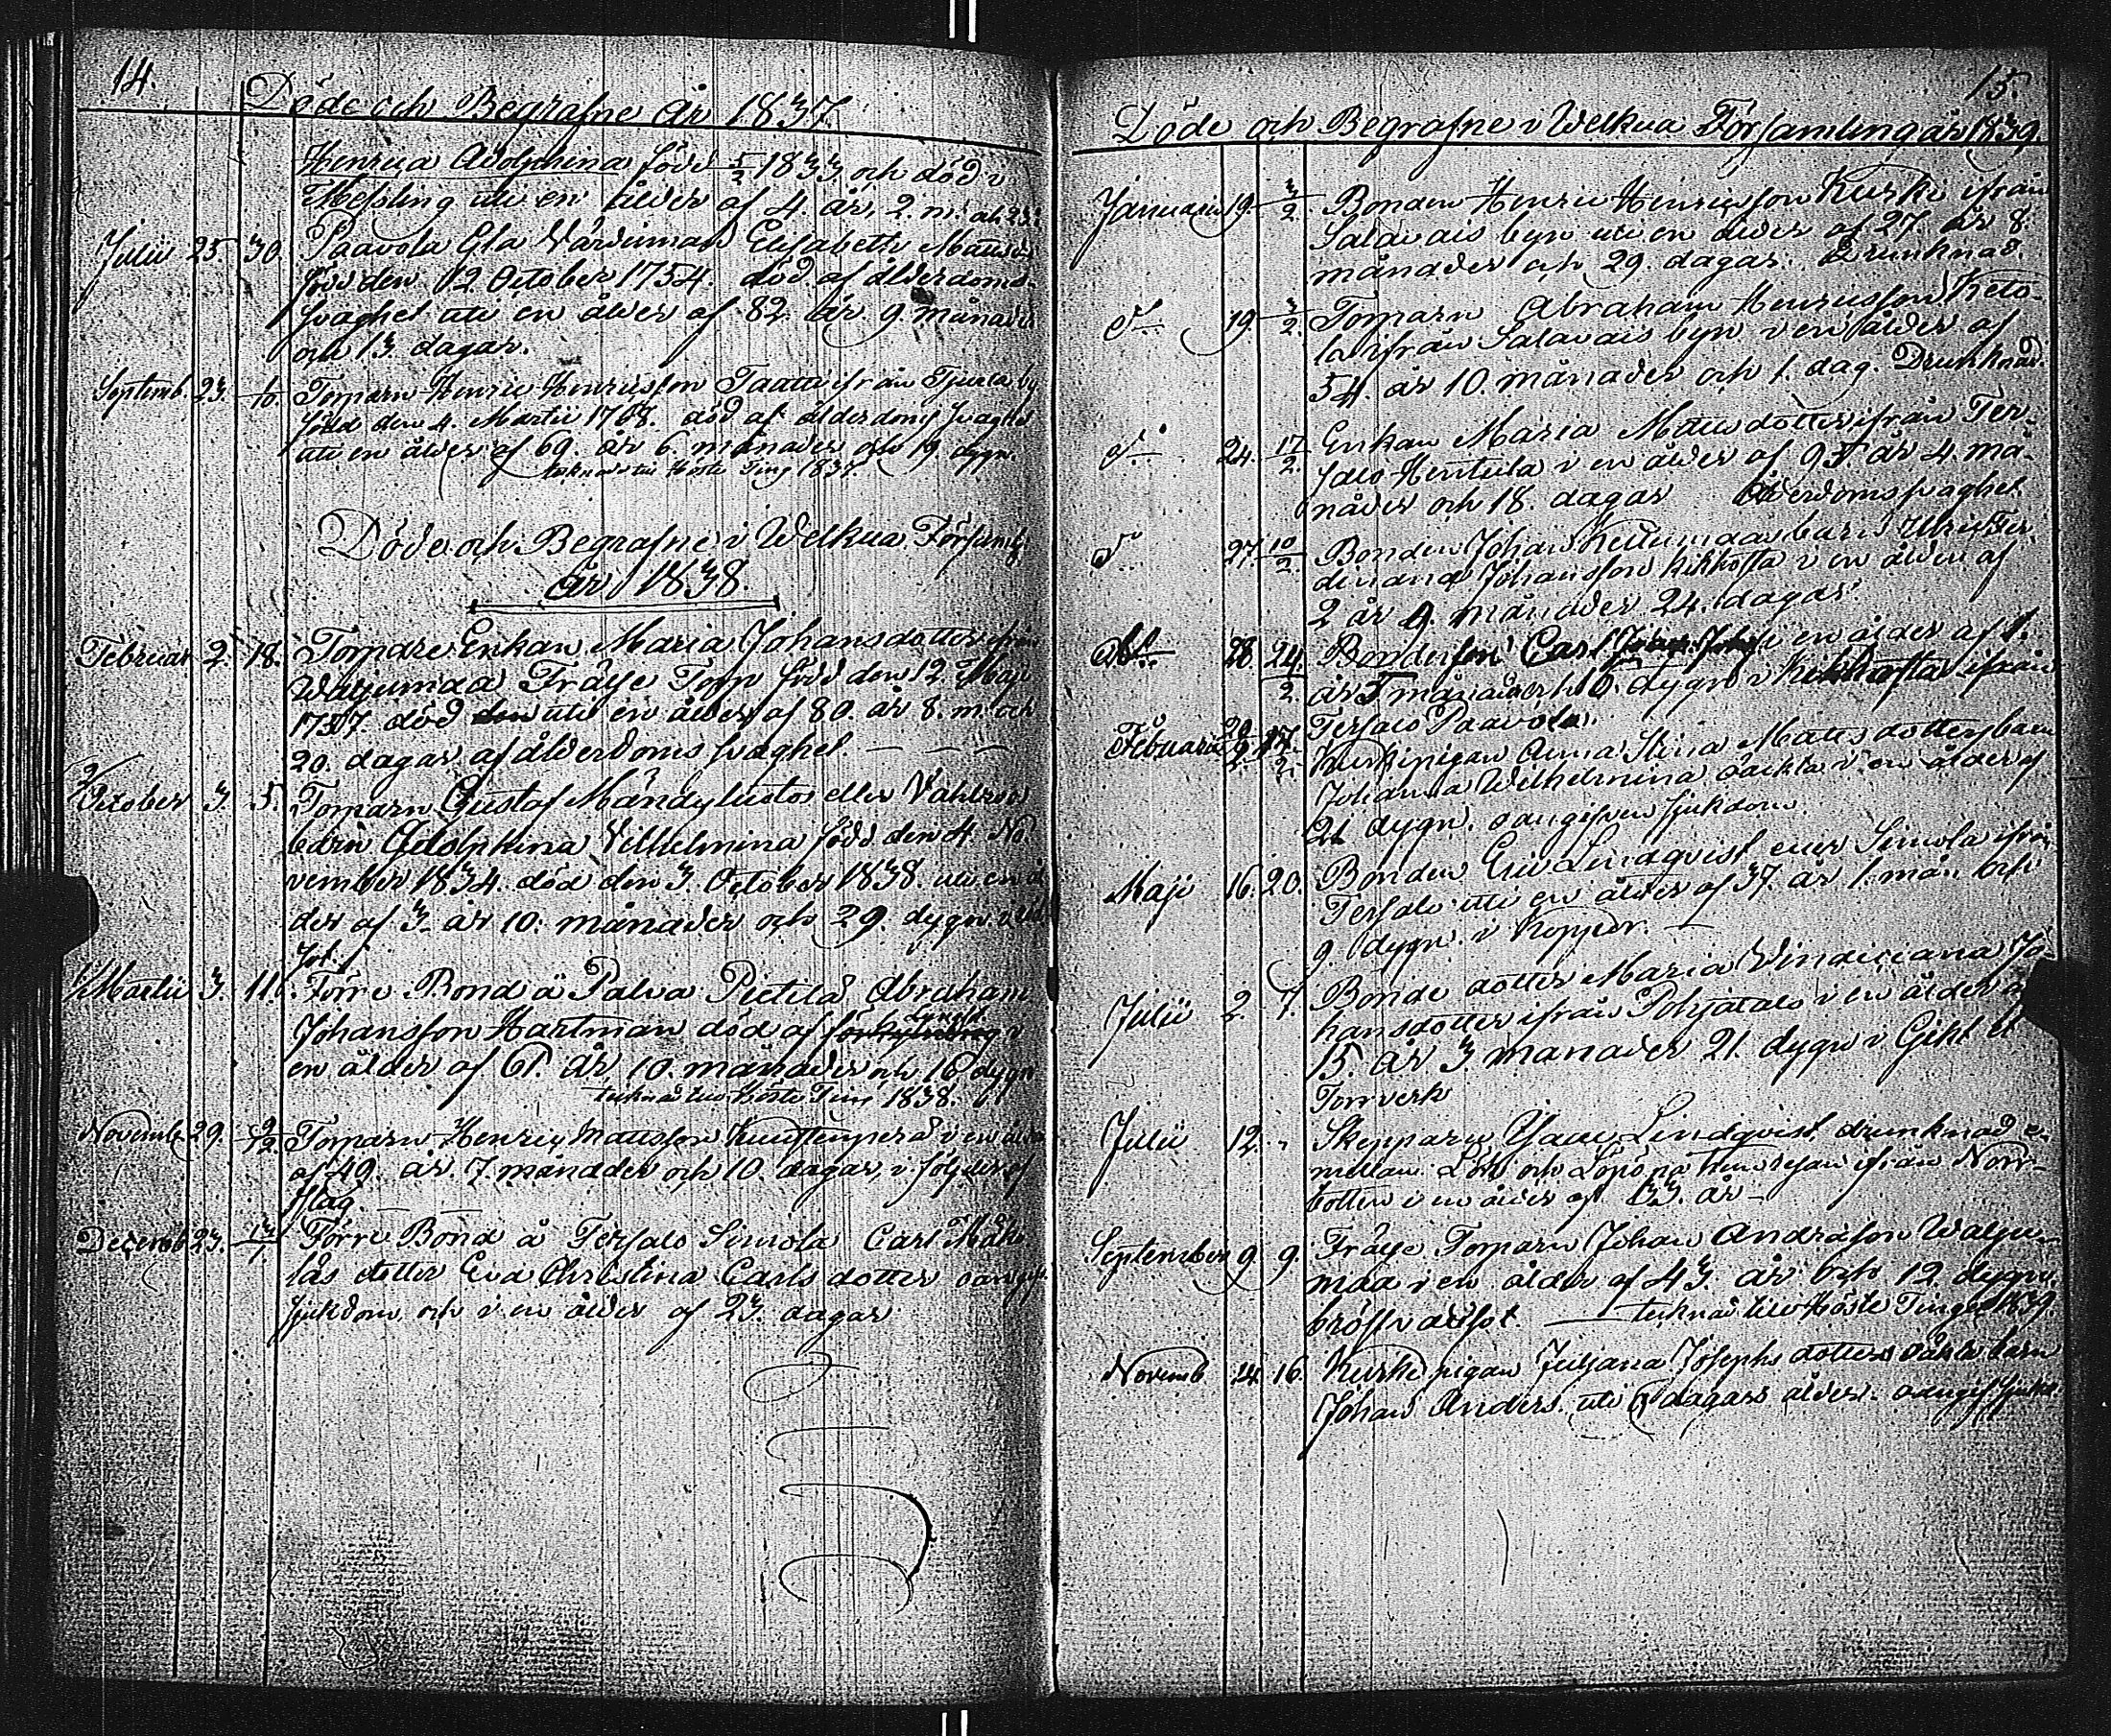 14.
Döde och Begrafne År 1837.
Henrica Adolphina född 5/2 1833 och död i
Messling uti en ålder af 4. år, 2. m. och 23.
Julii 25 30. Paavola Gla Värdinnan Elisabeth Matts
född den 12 October 1754. död af ålderdoms-
svaghet uti en ålder af 82. år 9. månader
och 13. dagar.
Septemb. 23. Torparn Henric Henricsson Taatti ifrån
född den 4. Martii 1768. död af ålderdoms svaghet
uti en ålder af 69. år 6. månader och 19 dygn.
Höste Ting 1837.
Döde och Begrafne i Welkua Församl.
år 1838.
Februar 2. 18. Torpare Enkan Maria Johansdotter ifrån
Waljumaa Frälse Torp född den 12 Maji
1757. död uti en ålder af 80. år 8. m. och
20. dagar af ålderdoms svaghet
October 3. 5. Torparn Gustaf Mändyluoto eller Vahlros
barn Adolphina Vilhelmina född den 4. No
vember 1834. död den 3. October 1838. uti en ål
der af 3. år 10. månader och 29. dygn
Martii 3. 11. Förre Bond å Palva Pietilä Abraham
Johansson Hartman död af
en ålder af 61. år 10. månader och 16 dygn
Höste Ting 1838.
Novemb 29. 9/12. Torparn Henric Mattsson i en ålder
af 49. år 7. månader och 10. dagar, i följd af
slag.
Decemb 23. 13/1. Förre Bond å Tersalo Simola Carl
lås dotter Eva Christina Carls dotter oangif.
sjukdom och i en ålder af 23. dagar
15.
Döde och Begrafne i Welkua Församling år 1839.
Januarii 19. 3/2. Bonden Henric Henricsson Kurki ifrån
Salavais byn uti en ålder af 27. år 8.
månader och 29. dagar. Drunknad.
19. 3/2. Torparn Abraham Henricsson Keto-
la ifrån Salavais byn i en ålder af
54. år 10. månader och 1. dag. Drunknad.
24. 17/2. Enkan Maria Matts dotter ifrån Ter-
salo Hentula i en ålder af 95. år 4. må-
nader och 18. dagar Ålderdomssvaghet
27. 10/2. Bonden Johan barn Ulric Fer-
dinand Johansson kikhosta i en ålder af
2 år 9. månader 24. dagar
28 24/2. Bondeson Carl i en ålder af 1.
år 5 månader och 6. dygn i Kikhosta ifrån
Tersalo Paavola.
Februarii 17/2. Kurki pigan Anna Stina Matts dotters barn
Johanna Wilhelmina oäckta i en ålder af
21 dygn. oangifven sjukdom.
Maji 16. 20. Bonden Eric Lindqvist eller Simola ifrån
Tersalo uti en ålder af 37. år 1. mån. och
9. dygn. i Koppor.
Julii 2. 7. Bonde dotter Maria Vindiciana Jo-
hansdotter ifrån Pohjatalo i en ålder af
15. år 3 månader 21. dygn i Gikt
Torrverk
Julii 12. " Skepparn Lindqvist drunknad e-
mellan och på hemresan ifrån Norr-
botten i en ålder af 33. år
September 9. 9. Frälse Torparn Johan Andersson Walju-
maa i en ålder af 43. år och 12. dygn,
bröstvattsot till Höste Tinget 1839
Novemb 14. 16. Kurki pigan Juliana Josephs dotters oäkta barn
Johan Anders. uti 6 dagars ålder. oangif sjukd.